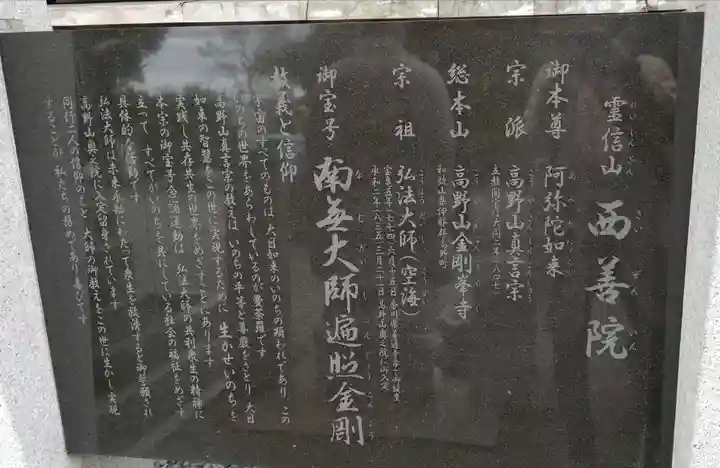 霊信山 西善院
れいしんざん さいぜんいん
御本尊 阿弥陀如来
宗派 高野山真言宗
総本山 高野山金剛峯寺
和歌山県伊都郡高野町
宗祖 弘法大師(空海)
御宝号 南無大師遍照金剛
教義と信仰
宇宙のすべてのものは 大日如来のいのちの顕われであり この
いのちの世界をあらわしているのが曼荼羅です
高野山真言宗の教えは いのちの平等と尊厳をさとり 大日
如来の智慧をこの世に実現するために 生かせいのち を
実践し共存共生の世界をめざすことにあります
本宗の御宝号念誦運動は 弘法大師の共利群生の精神に
立って すべてのいのちと共にしている社会の福祉をめざす
具体的な信仰です
弘法大師は未来永劫にわたって衆生を救済すると御誓願され
高野山奥之院に入定留身されています
同行二人の信仰のもと 大師の御教えをこの世に生かし実現
することが 私たちの務めであり喜びです